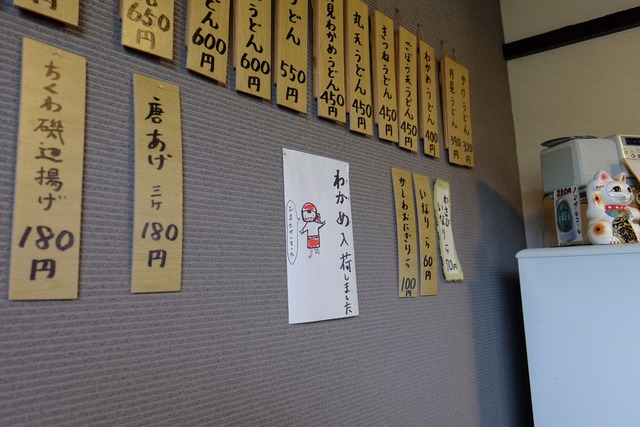 かけうどん 320
月見うどん 380
わかめうどん 400
ごぼう天うどん 450
きつねうどん 450
丸天うどん 450
月見わかめうどん 450
うどん 550
うどん 600
どん 600
650円
わさび
いなり
70円
いなり 一ヶ 60円
かしわおにぎり 一ヶ 100円
わかめ入荷しました
唐あげ 三ヶ 180円
ちくわ磯辺揚げ 180円